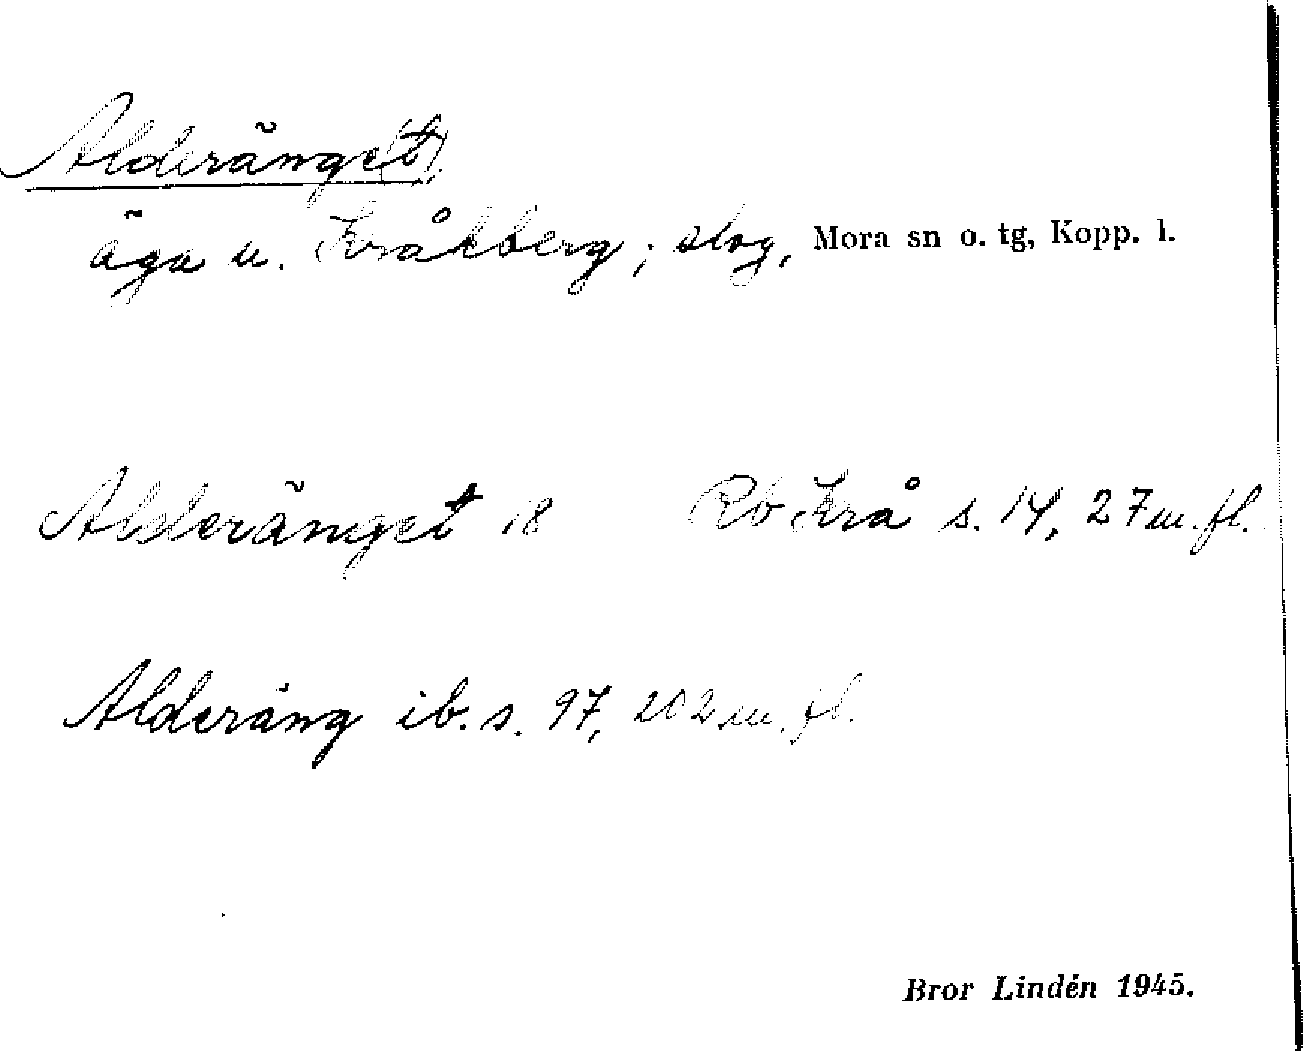 Alderänge(t)
äga u. Kråkberg; slog, Mora sn o. tg, Kopp. l.
Alderänget 18 Rb Krå s. 14, 27 m. fl.
Alderäng ib. s. 97, 202 m. fl.
Bror Lindén 1945.